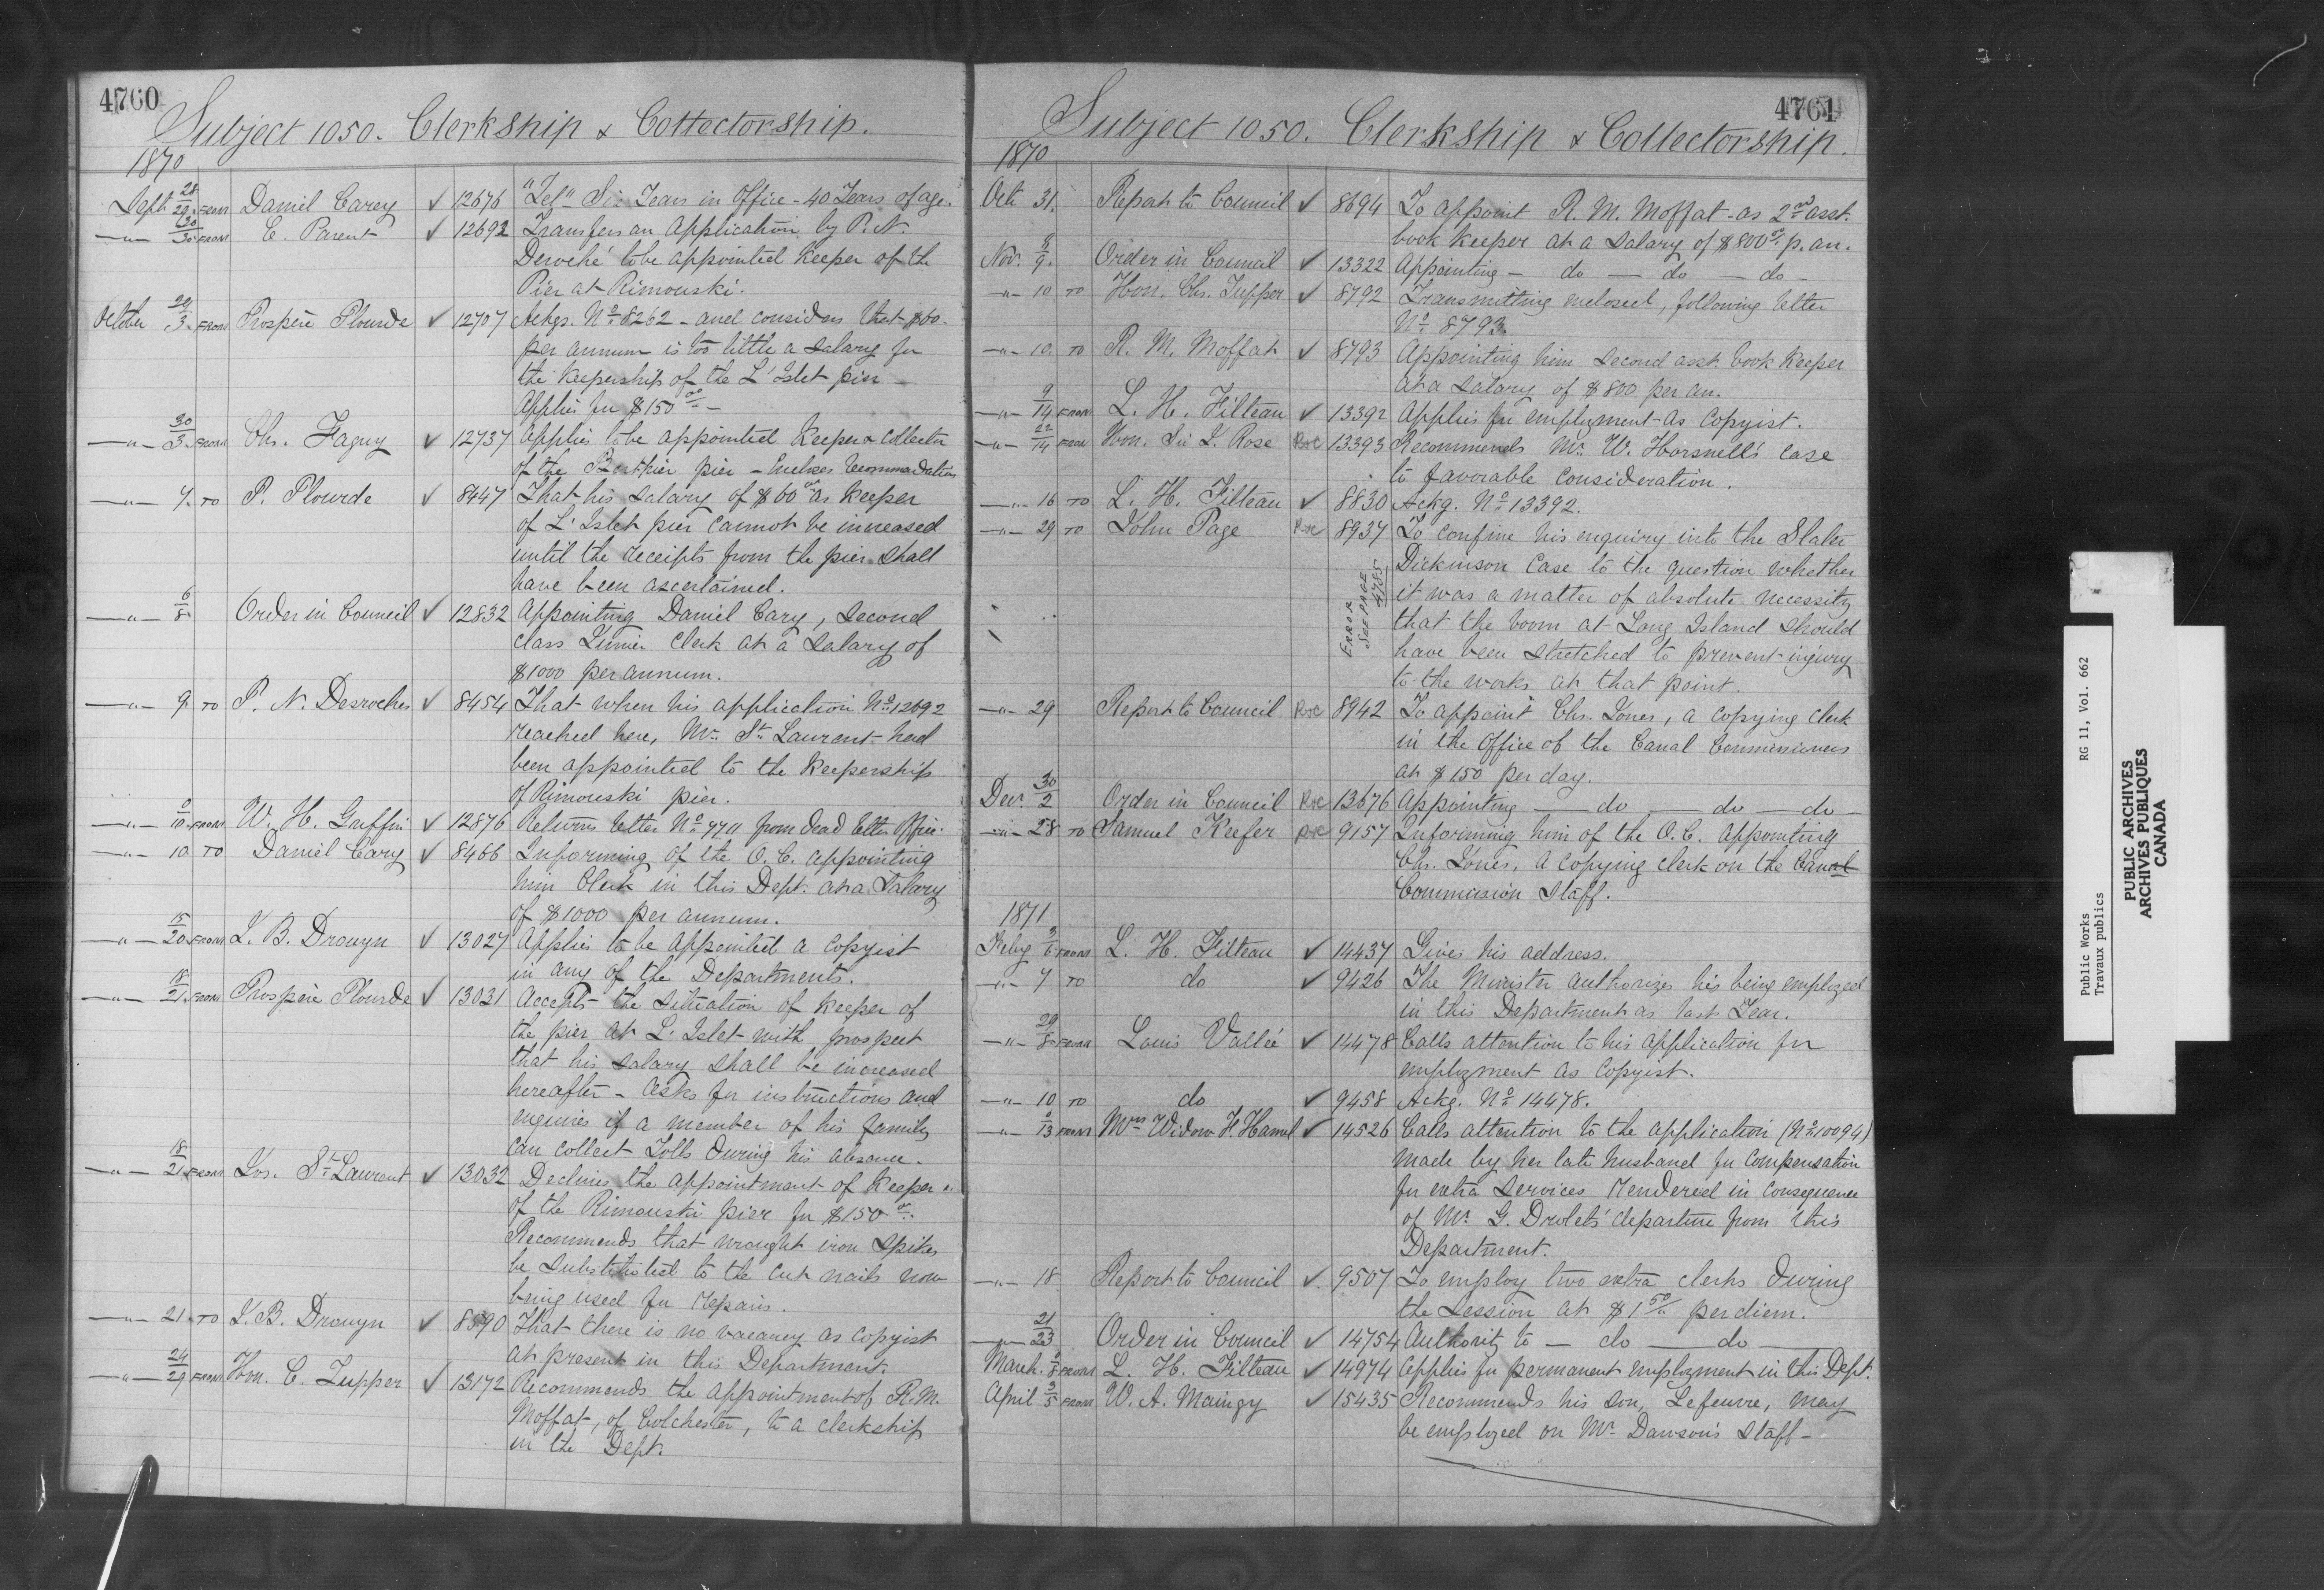 4760
Subject 1050. Clerkship & Collectorship.
1870
Sept 28/29. FROM Daniel Carey ✓ 12676 "Tel" Six Years in Office - 40 Years of age.
—"— 30/30. FROM E. Parent ✓ 12692 Transfers an Application by P. N.
Deroché to be appointed Keeper of the
Pier at Rimouski.
October 29/3. FROM Prospère Plourde ✓ 12707 Ackgs. No 8262 - and considers that $60.
per annum is too little a salary for
the Keepership of the L'Islet pier -
Applies for $150 00 -
—"— 30/3. FROM Chs. Faguy ✓ 12737 Applies to be appointed Keeper & Collector
of the Berthier pier - Encloses recommendation
—"— 7. TO P. Plourde ✓ 8447 That his salary of $60 00 as Keeper
of L'Islet pier cannot be increased
until the receipts from the pier shall
have been ascertained.
—"— 6/8. Order in Council ✓ 12832 Appointing Daniel Cary, second
class Junior Clerk at a Salary of
$1000 per annum.
—"— 9. TO P. N. Desroches ✓ 8454 That when his application No 12692
reached here, Mr. St. Laurent had
been appointed to the Keepership
of Rimouski pier.
—"— 0/10. FROM W. H. Griffin ✓ 12876 Returns letter No 7711 from dead letter office.
—"— 10. TO Daniel Cary ✓ 8466 Informing of the O. C. appointing
him Clerk in this Dept. at a Salary
of $1000 per annum.
—"— 15/20. FROM J. B. Drouyn ✓ 13027 Applies to be appointed a copyist
in any of the Departments.
—"— 18/21. FROM Prospère Plourde ✓ 13031 Accepts the situation of Keeper of
the pier at L'Islet with prospect
that his salary shall be increased
hereafter - Asks for instructions and
enquires if a member of his family
can collect Tolls during his absence.
—"— 18/21. FROM Jos. St. Laurent ✓ 13032 Declines the appointment of Keeper
of the Rimouski pier for $150 00.
Recommends that wrought iron spikes
be substituted to the cut nails now
being used for repairs.
—"— 21. TO J. B. Drouyn ✓ 8590 That there is no vacancy as copyist
at present in this Department.
—"— 24/29 FROM Hon. C. Tupper ✓ 13172 Recommends the appointment of R. M.
Moffat, of Colchester, to a clerkship
in the Dept.
4761
Subject 1050. Clerkship & Collectorship.
1870
Oct. 31. Report to Council ✓ 8694 To appoint R. M. Moffat as 2nd asst.
book keeper at a salary of $800 00 p. an.
Nov. 8/9. Order in Council ✓ 13322 Appointing — do — do — do —
—"— 10 TO Hon. Chs. Tupper ✓ 8792 Transmitting enclosed, following letter
No 8793.
—"— 10. TO R. M. Moffat ✓ 8793 Appointing him second asst. book keeper
at a salary of $800 per an.
—"— 9/14 FROM L. H. Filteau ✓ 13392 Applies for employment as Copyist.
—"— 22/14 FROM Hon. Sir J. Rose 13393 Recommends Mr. W. Horsnell's case
to favorable consideration.
—"— 16 TO L. H. Filteau ✓ 8830 Ackg. No 13392.
—"— 29 TO John Page 8937 To confine his enquiry into the Slater
Dickinson Case to the question whether
it was a matter of absolute necessity
that the boom at Long Island should
have been stretched to prevent injury
to the works at that point.
ERROR
SEE PAGE
4785
—"— 29 Report to Council 8942 To appoint Chs. Jones, a copying clerk
in the Office of the Canal Commissioners
at $150 per day.
Decr. 30/2 Order in Council 13676 Appointing — do — do — do —
—"— 28 TO Samuel Keefer 9157 Informing him of the O. C. appointing
Chs. Jones, a copying clerk on the Canal
Commission Staff.
1871
Feby 3/6 FROM L. H. Filteau ✓ 14437 Gives his address.
—"— 7 TO do ✓ 9426 The Minister authorizes his being employed
in this Department as last Year.
—"— 29/8 FROM Louis Vallée ✓ 14478 Calls attention to his application for
employment as Copyist.
—"— 10 TO do ✓ 9458 Ackg. No 14478.
—"— 0/13 FROM Mrs Widow F. Hamel ✓ 14526 Calls attention to the application (No 10094)
made by her late husband for compensation
for extra services rendered in consequence
of Mr. G. Drolet's departure from this
Department.
—"— 18 Report to Council ✓ 9507 To employ two extra clerks during
the session at $1 50/ per diem.
—"— 21/23 Order in Council ✓ 14754 Authority to — do — do —
March. 0/8 FROM L. H. Filteau ✓ 14974 Applies for permanent employment in this Dept.
April 3/5 FROM W. A. Maingy ✓ 15435 Recommends his son, Lefeuvre, may
be employed on Mr. Dawson's Staff -
Public Works
Travaux publics
RG 11, Vol. 662
PUBLIC ARCHIVES
ARCHIVES PUBLIQUES
CANADA